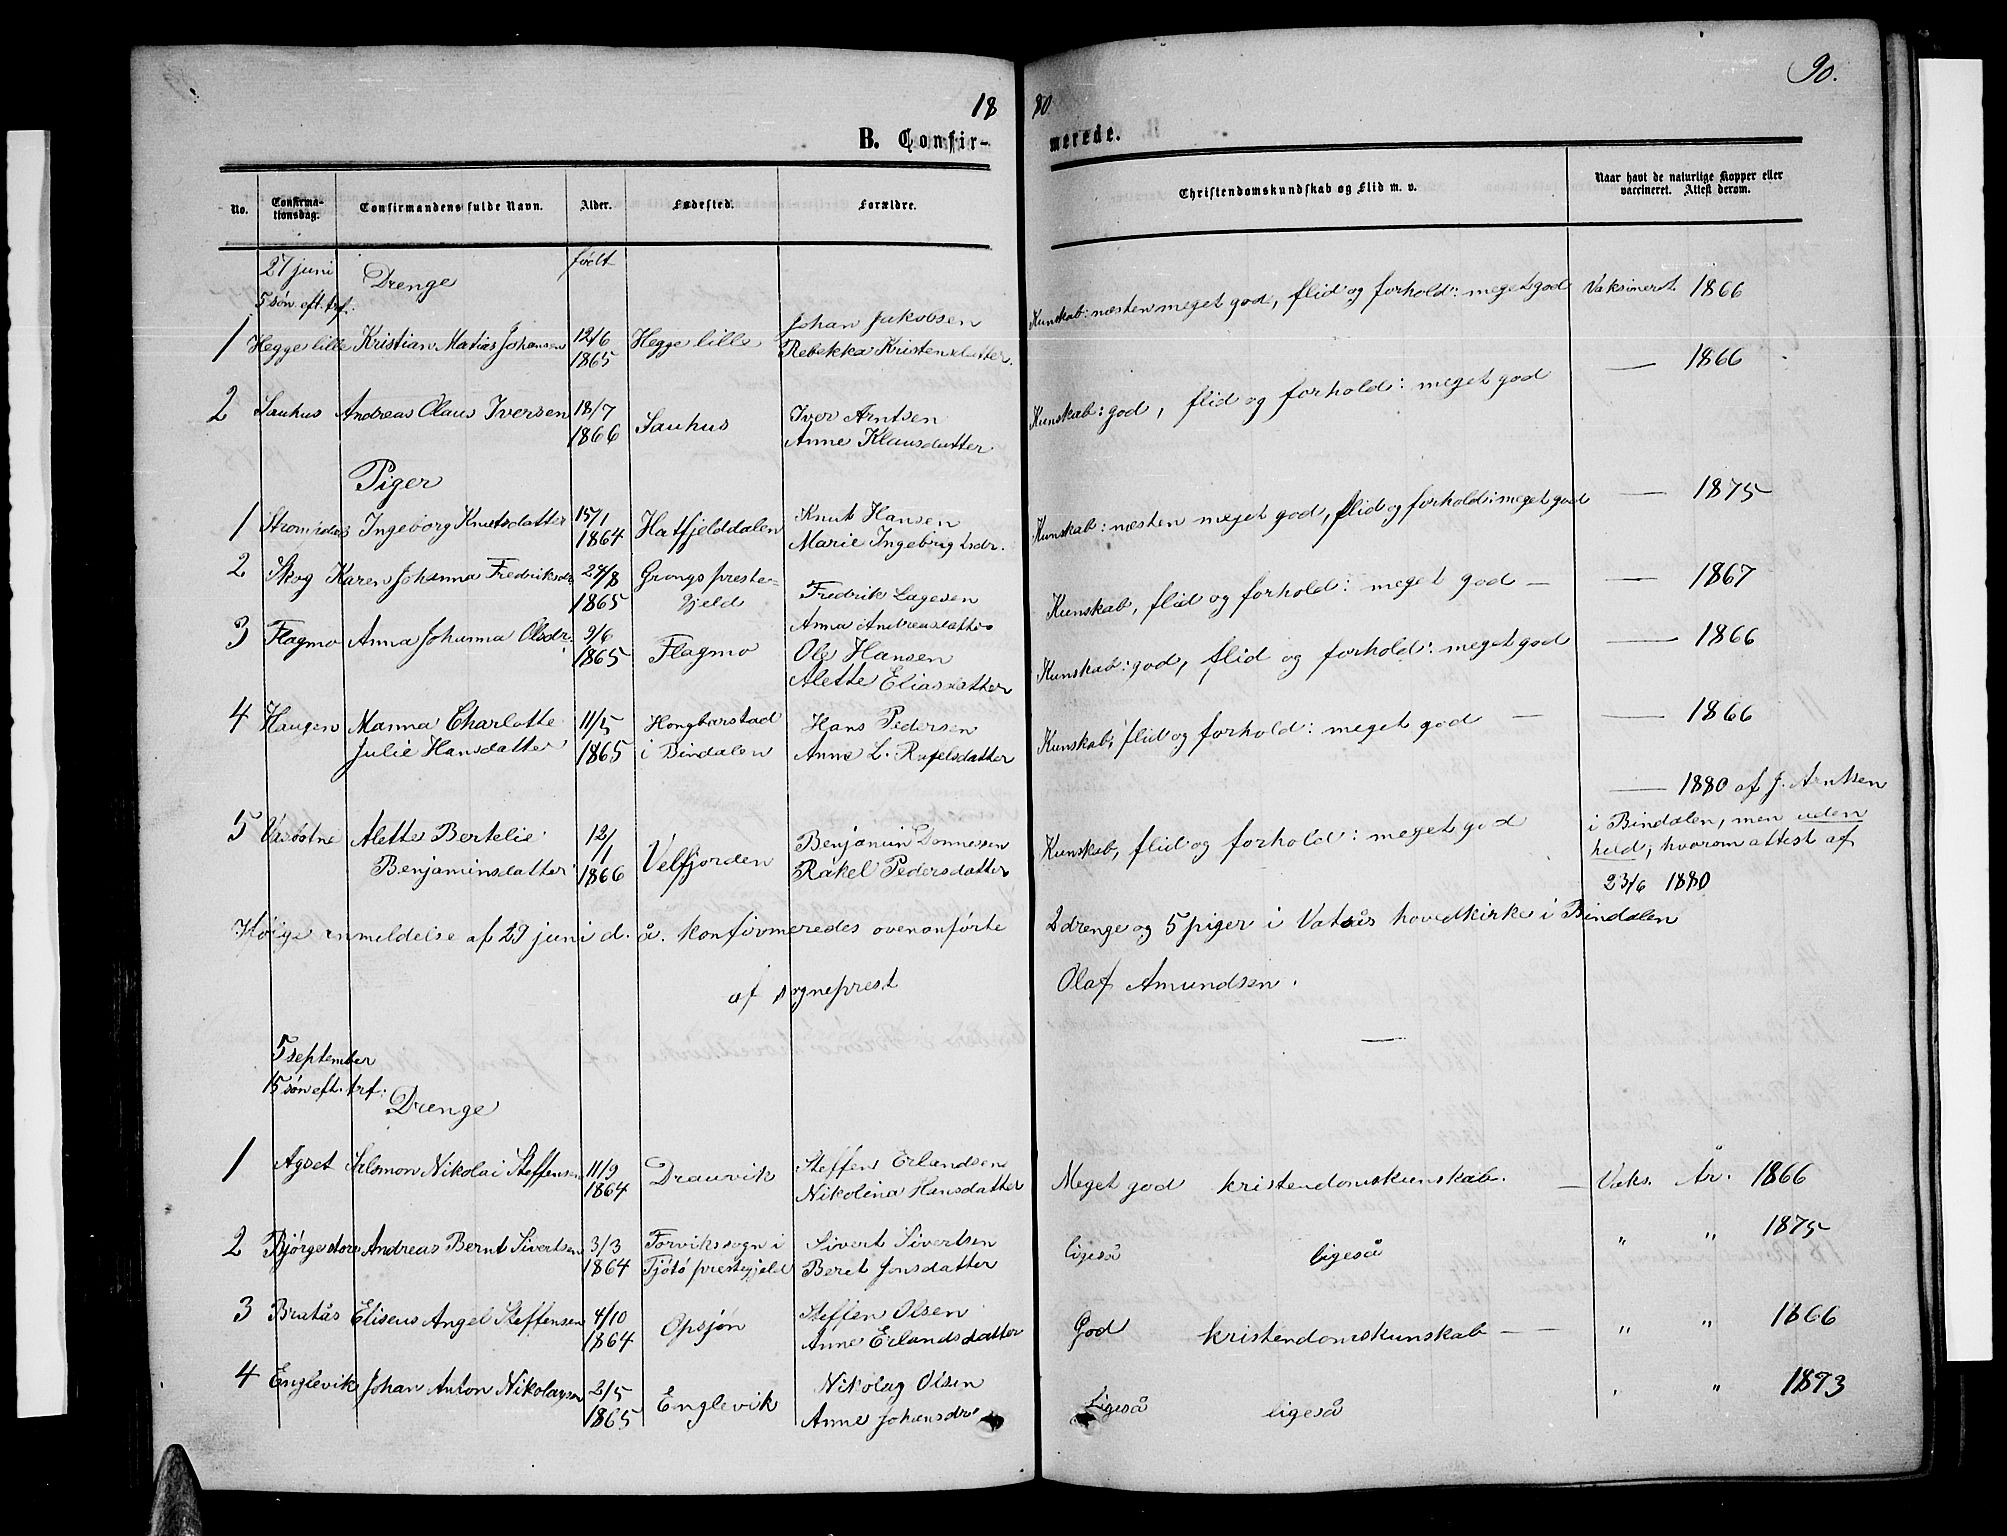 90.
18 80.
B. Confir- merede.
No. Confirma-tionsdag. Confirmandens fulde Navn. Alder. Fødested. Forældre. Christendomskundskab og Flid m. v. Naar havt de naturlige Kopper eller vaccineret. Attest derom.
27 juni født
5 søn. eft. trf.: Drenge
1 Hegge lille Kristian Matias Johansen 12/6 1865 Hegge lille Johan Jakobsen Rebekka Kristensdatter. Kunskab: næsten meget god, flid og forhold: meget god Vaksineret. 1866
2 Sauhus Andreas Olaus Iversen 18/7 1866 Sauhus Iver Arntsen Anne Klausdatter Kunskab: god, flid og forhold: meget god — 1866
Piger
1 Ingeborg Knutsdatter 15/1 1864 Hatfjelddalen Knut Hansen Marie Ingebrigtsdr. Kunskab: næsten meget god, flid og forhold: meget god — 1875
2 Skog Karen Johanna Fredriksdr 24/8 1865 Grongs preste-gjeld Fredrik Lagesen Anna Andreasdatter Kunskab, flid og forhold: meget god — — 1867
3 Flagmo Anna Johanna Olsdr. 9/6 1865 Flagmo Ole Hansen Alette Eliasdatter Kunskab: god, flid og forhold: meget god — 1866
4 Haugen Manna Charlotte Julie Hansdatter 11/5 1865 i Bindalen Hans Pedersen Anne L. Rafelsdatter Kunskab, flid og forhold: meget god — — 1866
5 Alette Bertelie Benjaminsdatter 12/1 1866 Velfjorden Benjamin Donnessen Rakel Pedersdatter Kunskab, flid og forhold: meget god — 1880 af J. Arntsen
i Bindalen, men uden
held, hvorom attest af
23/6 1880
Ifølge anmeldelse af 29 juni d. å. konfirmeredes ovenanførte 2 drenge og 5 piger i Vatsås hovedkirke i Bindalen
af sogneprest Olaf Amundsen.
5 september
15 søn eft. trf:
Drenge
1 Agset Salomon Nikolai Steffensen 11/9 1864 Drauvik Steffen Erlandsen Nikolina Hansdatter Meget god kristendomskunskab. — Vaks. År. 1866
2 Bjørge store Andreas Bernt Sivertsen 3/3 1864 Forvikssogn i Tjøtø prestegjeld Sivert Sivertsen Beret Jonsdatter ligeså ligeså " " 1875
3 Bratås Eliseus Angel Steffensen 4/10 1864 Opsjøn Steffen Olsen Anne Erlandsdatter God kristendomskunskab — — " " 1866
4 Englevik Johan Anton Nikolaysen 2/5 1865 Englevik Nikolay Olsen Anne Johansdr Ligeså ligeså " " 1873